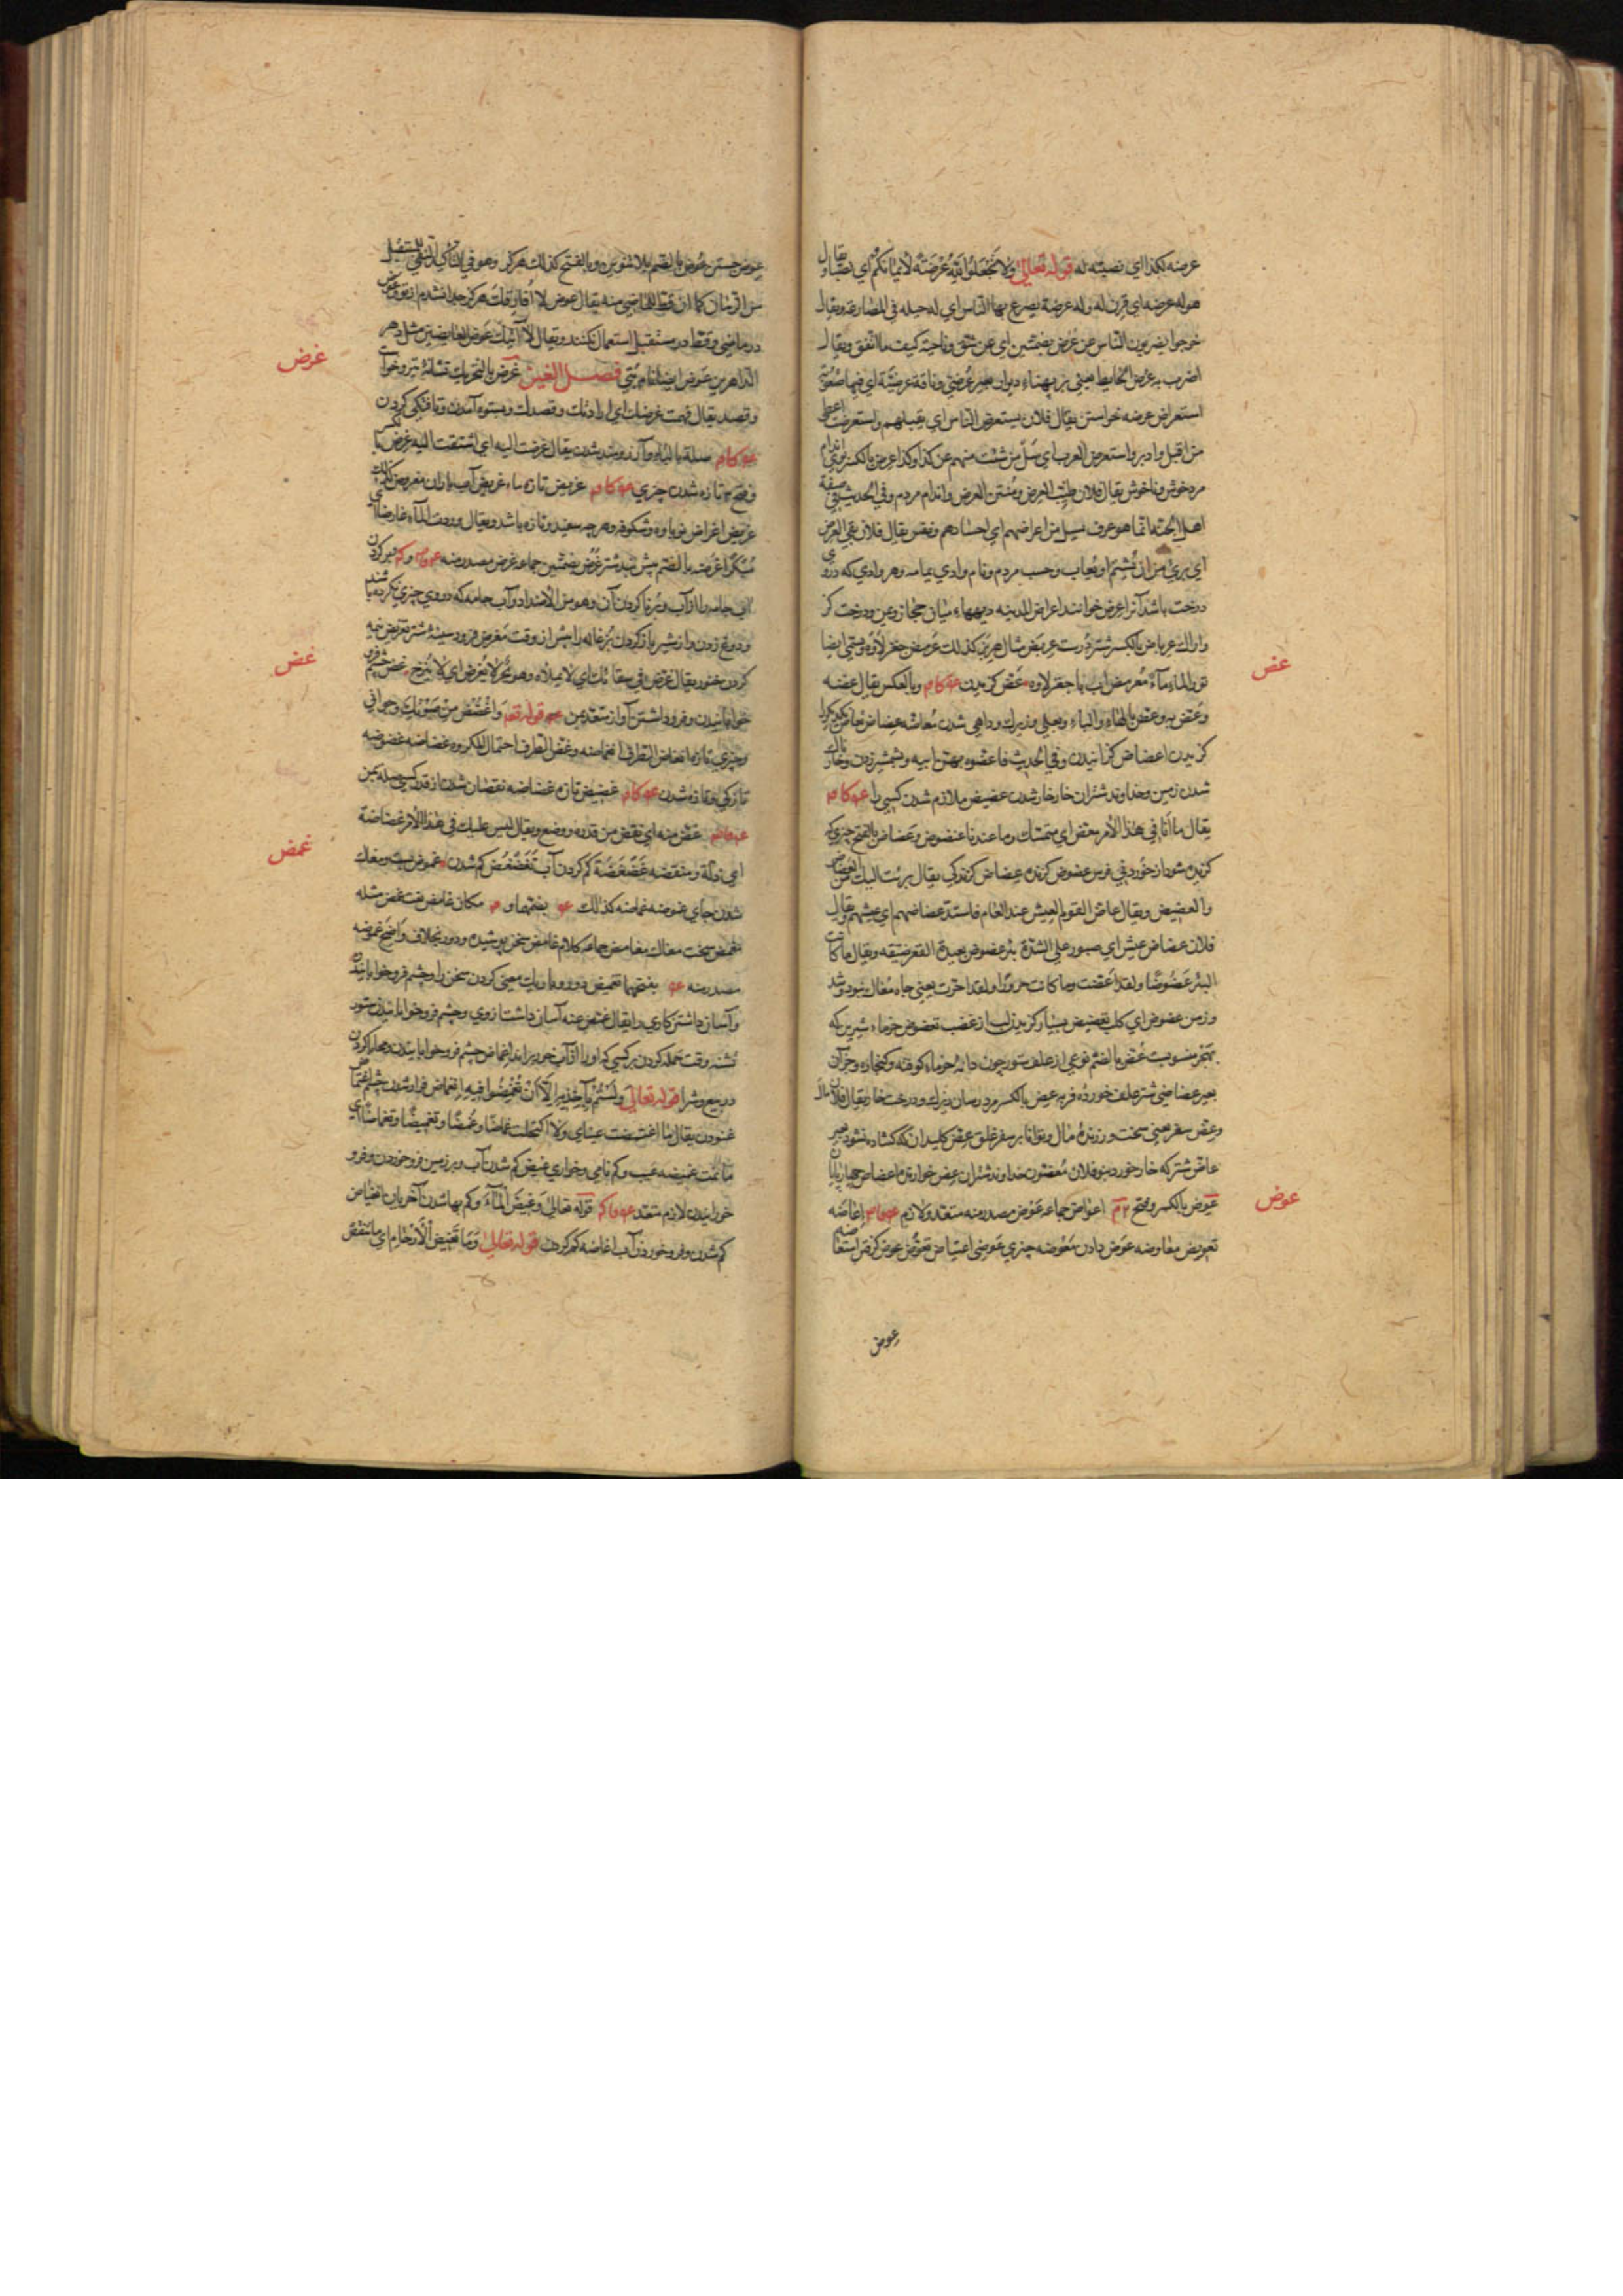 عرضه لكذا اي نصبته له قوله تعالى ولا تجعلوا الله عرضة لايمانكم اي نصبا ويقال
هو له عرضه اي قرن له وله عرضة يصرع بها الناس اي له حيله في المصارعه ويقال
خرجوا يضربون الناس عن عرض بضمتين اي عن شق وناحية كيف ما اتفق ويقال
اضرب به عرض الحايط يعني بر پهناء ديوار بعير عرضي وناقة عرضية اي فيها صعوبة
استعراض عرضه خواستن يقال فلان يستعرض الناس اي يقبلهم واستعرضت اعطي
من اقبل وادبر واستعرض العرب اي سل من شئت منهم عن كذا وكذا عرض بالكسر بوي اندام
مرد خوش وناخوش يقال فلان طيب العرض ومنتن العرض واندام مردم وفي الحديث في صفة
اهل الجنة انما هو عرف يسيل من اعراضهم اي اجسادهم ونفس يقال فلان نقي العرض
اي بريء من ان يشتم او يعاب وحسب مردم ونام وادي بيمامه وهر وادي كه درو
درخت باشد آنرا عرض خوانند اعراض المدينه ديهاء ميان حجاز ويمن ودرخت كز
واراك عرباض بالكسر شتر درست عربض مثال هزبر كذلك عرمض جغز لاوه ويسمى ايضا
ثور الماء ماء معرمض اب با جغز لاوه عض كزيدن وبالعكس يقال عضه
وعض به وعض بالهاء والباء وعلي وزيرك وداهي شدن معاضه عضاض
كزيدن اعضاض كزانيدن وفي الحديث فاعضوه بهن ابيه وبشمشير زدن وخارناك
شدن زمين وخداوند شتران خار خار شدن عضيض ملازم شدن كسي را
يقال ما انا في هذا الامر بعض اي متمسك وما عندنا عضوض وعضاض بالفتح چيزي كه
كزيده شود از خورد في فرس عضوض كزنده عضاض كزندگي يقال برئت اليك من العضاض
والعضيض ويقال عاض القوم العيش عند العام فاشتد عضاضهم اي عيشهم ويقال
فلان عضاض عيش اي صبور على الشدة بئر عضوض بعيدة القعر ضيقه ويقال ما كانت
البئر عضوضا ولقد اعضت وما كانت جرورا ولقد اجرت يعني چاه مغاك نبود وشد
وزمن عضوض اي كلب تعضيض بسيار كزيدن لب از غضب تعضوض خرماء شيرين كه
بهجر منسوبست عض بالضم نوعي از علف ستور چون دانه خرماء كوفته وكنجاره وجز آن
بعير عضاضي شتر علف خورده فربه عض بالكسر مرد رسان زيرك ودرخت خار يقال فلان
وعض سفر يعني سخت ورزنده مال وتوانا بر سفر غلق عض كليدان كه كشاده نشود بعير
عاض شتر كه خار خورد بنو فلان معضون خداوند شتران عض خوارند اعضاض چهارپايان
عوض بالكسر وفتح اعواض جماعه عوض مصدر منه متعد ولازم اعاضه
تعويض معاوضه عوض دادن معوضه چيزي عوضي اعتياض تعوض عوض كرفتن استعاضه
عوض
عض
عوض
عوض جستن عوض بالضم بلا تنوين دو وبالفتح كذلك هركز وهو في التأكيد لنفي المستقبل
من الزمان كما ان قط للماضي منه يقال عوض لا افارقك هركز جدا نشوم از تو
در ماضي وقط در مستقبل استعمال نكنند ويقال لا آتيك عوض العايضين مثل دهر
الداهرين عوض ايضا نام بتي فصل الغين غرض بالتحريك نشانه تير وخواست
وقصد يقال فهمت غرضك اي ارادتك وقصدك وبستوه آمدن وتافتگي كردن
صلته بالباء وآرزومند شدن يقال غرضت اليه اي اشتقت اليه غرض بكسر
وفتح تازه شدن چيزي غريض تازه ماء غريض آب باران مغروض كذلك
غريض اغراض نوباوه وشكوفه وهر چه سفيد وتازه باشد ويقال وردت الماء غارضا اي
مبكرا غرضه بالضم پيش بند شتر غرض بضمتين جماعه غرض مصدر منه پر كردن
اي جامه را از آب وپر نا كردن آن وهو من الاضداد
كردن خنور يقال غرض في سقائك اي لا تملأه وهو بحر لا يغرض اي لا ينزح غض چشم فرو
خوابانيدن وفرو داشتن آواز متعد بمن قوله تعم واغضض من صوتك وجواني
وچيزي تازه انغضاض الطرف انغماضه وغض الطرف احتمال المكروه غضاضه غضوضه
تازگي وتازه شدن غضيض تازه غضاضه نقصان شدن از قدر كسي صلته بمن
غض منه اي نقص من قدره ووضع ويقال ليس عليك في هذا الامر غضاضة
اي ذلة ومنقصه غضغضة كم كردن آب تغضغض كم شدن غموض پست ومغاك
شدن جاي غموضه غماضه كذلك بضمتها و مكان غامض پست غمض مثله
مغمض سخت مغاك مغامض جماعه كلام غامض سخن پوشيده ودور بخلاف واضح غموضه
مصدر منه بفتحهما تغميض دور وباريك معني كردن سخن را وچشم فرو خوابانيدن
وآسان داشتن كاري را يقال غمض عنه آسان داشت از وي وچشم فرو خوابانيدن ستور
تشنه وقت حمله كردن بر كسي كه او را از آب خوردن براند اغماض چشم فرو خوابانيدن ومحابا كردن
در بيع وشرا قوله تعالى ولستم بآخذيه الا ان تغمضوا فيه انغماض فراز شدن چشم اغتماض
غنودن يقال ما اغتمضت عيناي ولا اكتحلت غماضا وغمضا وتغميضا وتغماضا اي
ما نمت غميضه عيب وكم نامي وخواري غيض كم شدن آب وبزمين فرو خوردن وفرو
خورانيدن لازم متعد قوله تعالى وغيض الماء وكم بها شدن آخريان انغياض
كم شدن وفرو خوردن آب اغاضه كم كردن قوله تعالى وما تغيض الارحام اي ما تنقص
غرض
غض
غمض